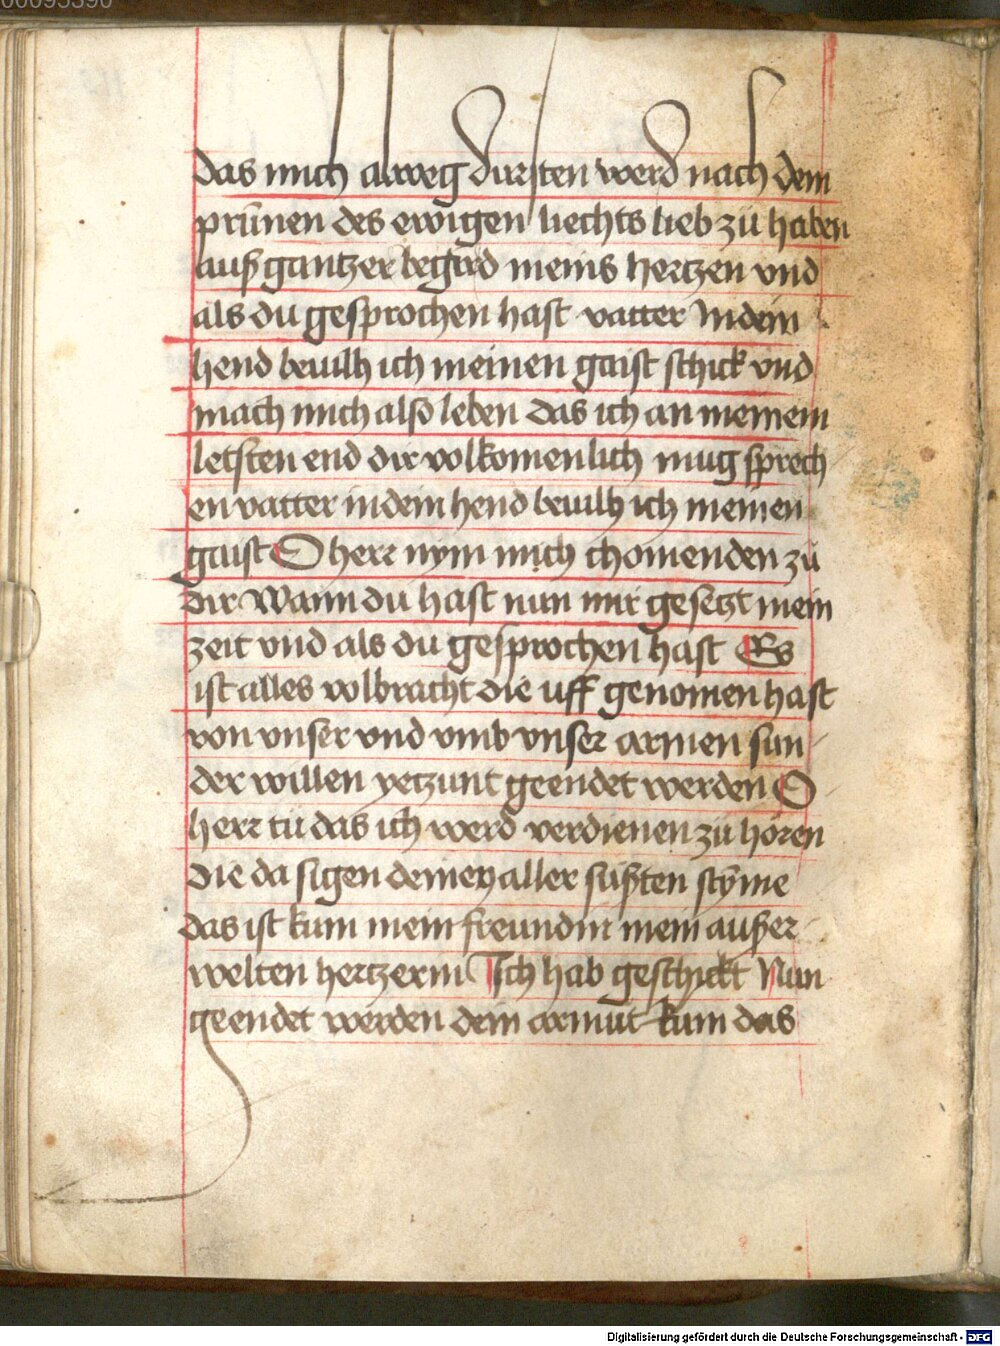 00095390
das mich alweg dursten werd nach dem
prūnen des ewigen liechts lieb zů haben
auß gantzer begird meins hertzen vnd
als du gesprochen hast vatter In dein
hend beuilh ich meinen gaist schick vnd
mach mich also leben das ich an meinem
letsten end dir volkomenlich mug sprech
en vatter in dein hend beuilh ich meinen
gaist O herr nym mich chomenden zů
dir Wann du hast nun mir gesetzt mein
zeit vnd als du gesprochen hast Es
ist alles volbracht die uff genomen hast
von vnser vnd vmb vnser armen sun
der willen yetzunt geendet werden O
herr tů das ich werd verdienen zů hören
die da sigen deinen aller süßten stȳme
das ist kum mein freundin mein außer
welten hertzerin Ich hab geschickt Nun
geendet werden dein armut kum das
Digitalisierung gefördert durch die Deutsche Forschungsgemeinschaft - DFG